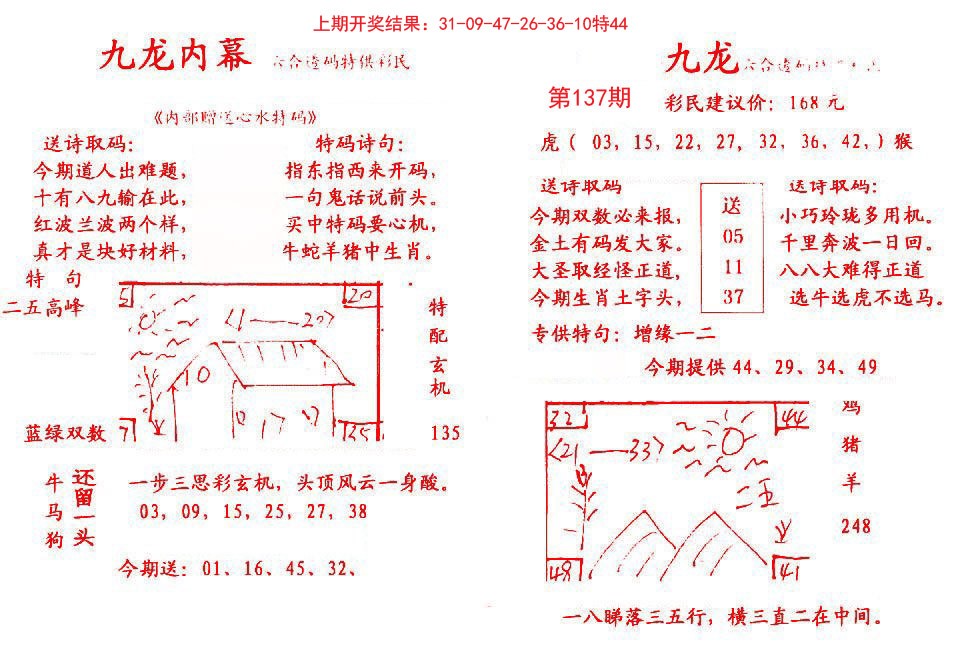 上期开奖结果：31-09-47-26-36-10特44
九龙内幕 六合透码特供彩民
《内部赠送心水特码》
送诗取码：
今期道人出难题，
十有八九输在此，
红波兰波两个样，
真才是块好材料，
特码诗句：
指东指西来开码，
一句鬼话说前头。
买中特码要心机，
牛蛇羊猪中生肖。
特 句
二五高峰
蓝绿双数
5
20
<1——20>
10
7
35
特
配
玄
机
135
牛
马
狗
还
留
一
头
一步三思彩玄机，头顶风云一身酸。
03，09，15，25，27，38
今期送：01、16、45、32、
九龙 六合透码
第137期
彩民建议价：168元
虎（ 03，15，22，27，32，36，42，）猴
送诗取码
今期双数必来报，
金土有码发大家。
大圣取经怪正道，
今期生肖土字头，
送
05
11
37
送诗取码：
小巧玲珑多用机。
千里奔波一日回。
八八大难得正道
选牛选虎不选马。
专供特句：增缘一二
今期提供44、29、34、49
32
44
<21——33>
二五
48
41
鸡
猪
羊
248
一八睇落三五行，横三直二在中间。